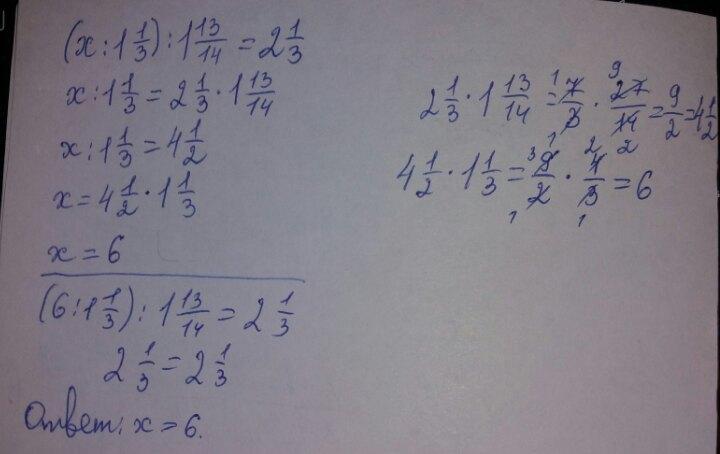 (x : 1 1/3) : 1 13/14 = 2 1/3
x : 1 1/3 = 2 1/3 · 1 13/14
x : 1 1/3 = 4 1/2
x = 4 1/2 · 1 1/3
x = 6
(6 : 1 1/3) : 1 13/14 = 2 1/3
2 1/3 = 2 1/3
Ответ: x = 6.
2 1/3 · 1 13/14 = 7/3 · 27/14 = 9/2 = 4 1/2
4 1/2 · 1 1/3 = 9/2 · 4/3 = 6